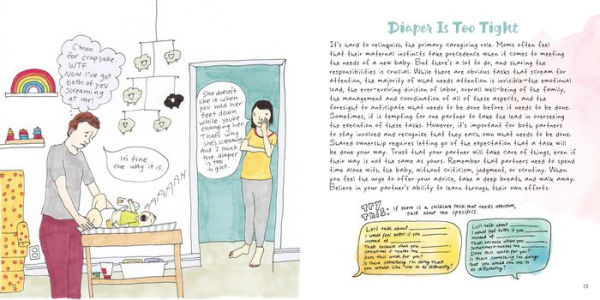 C'mon
for crapsake.
WTF.
Now I've got
both of you
screaming
at me!
It's fine
the way it is.
AAAAAHH
She doesn't
like it when
you hold her
feet down
while you're
changing her.
That's why
she's screaming.
And I think
the diaper
is too
tight.
Diaper Is Too Tight
It's hard to relinquish the primary caregiving role. Moms often feel
that their maternal instincts take precedence when it comes to meeting
the needs of a new baby. But there's a lot to do, and sharing the
responsibilities is crucial. While there are obvious tasks that scream for
attention, the majority of what needs attention is invisible—the emotional
load, the ever-evolving division of labor, overall well-being of the family,
the management and coordination of all of these aspects, and the
foresight to anticipate what needs to be done before it needs to be done.
Sometimes, it is tempting for one partner to take the lead in overseeing
the execution of these tasks. However, it's important for both partners
to stay involved and recognize that they each own what needs to be done.
Shared ownership requires letting go of the expectation that a task will
be done your way. Trust that your partner will take care of things, even if
their way is not the same as yours. Remember that partners need to spend
time alone with the baby, without criticism, judgment, or scrutiny. When
you feel the urge to offer your advice, take a deep breath, and walk away.
Believe in your partner's ability to learn through their own efforts.
TRY
THIS:
If there is a childcare task that needs attention,
talk about the specifics.
Let's talk about
I would feel better if you
instead of
That's because when you
sometimes it makes me
Does this work for you?
Is there something I'm doing that
you would like me to do differently?
Let's talk about
I would feel better if you
instead of
That's because when you
sometimes it makes me
Does this work for you?
Is there something I'm doing
that you would like me to
do differently?
13